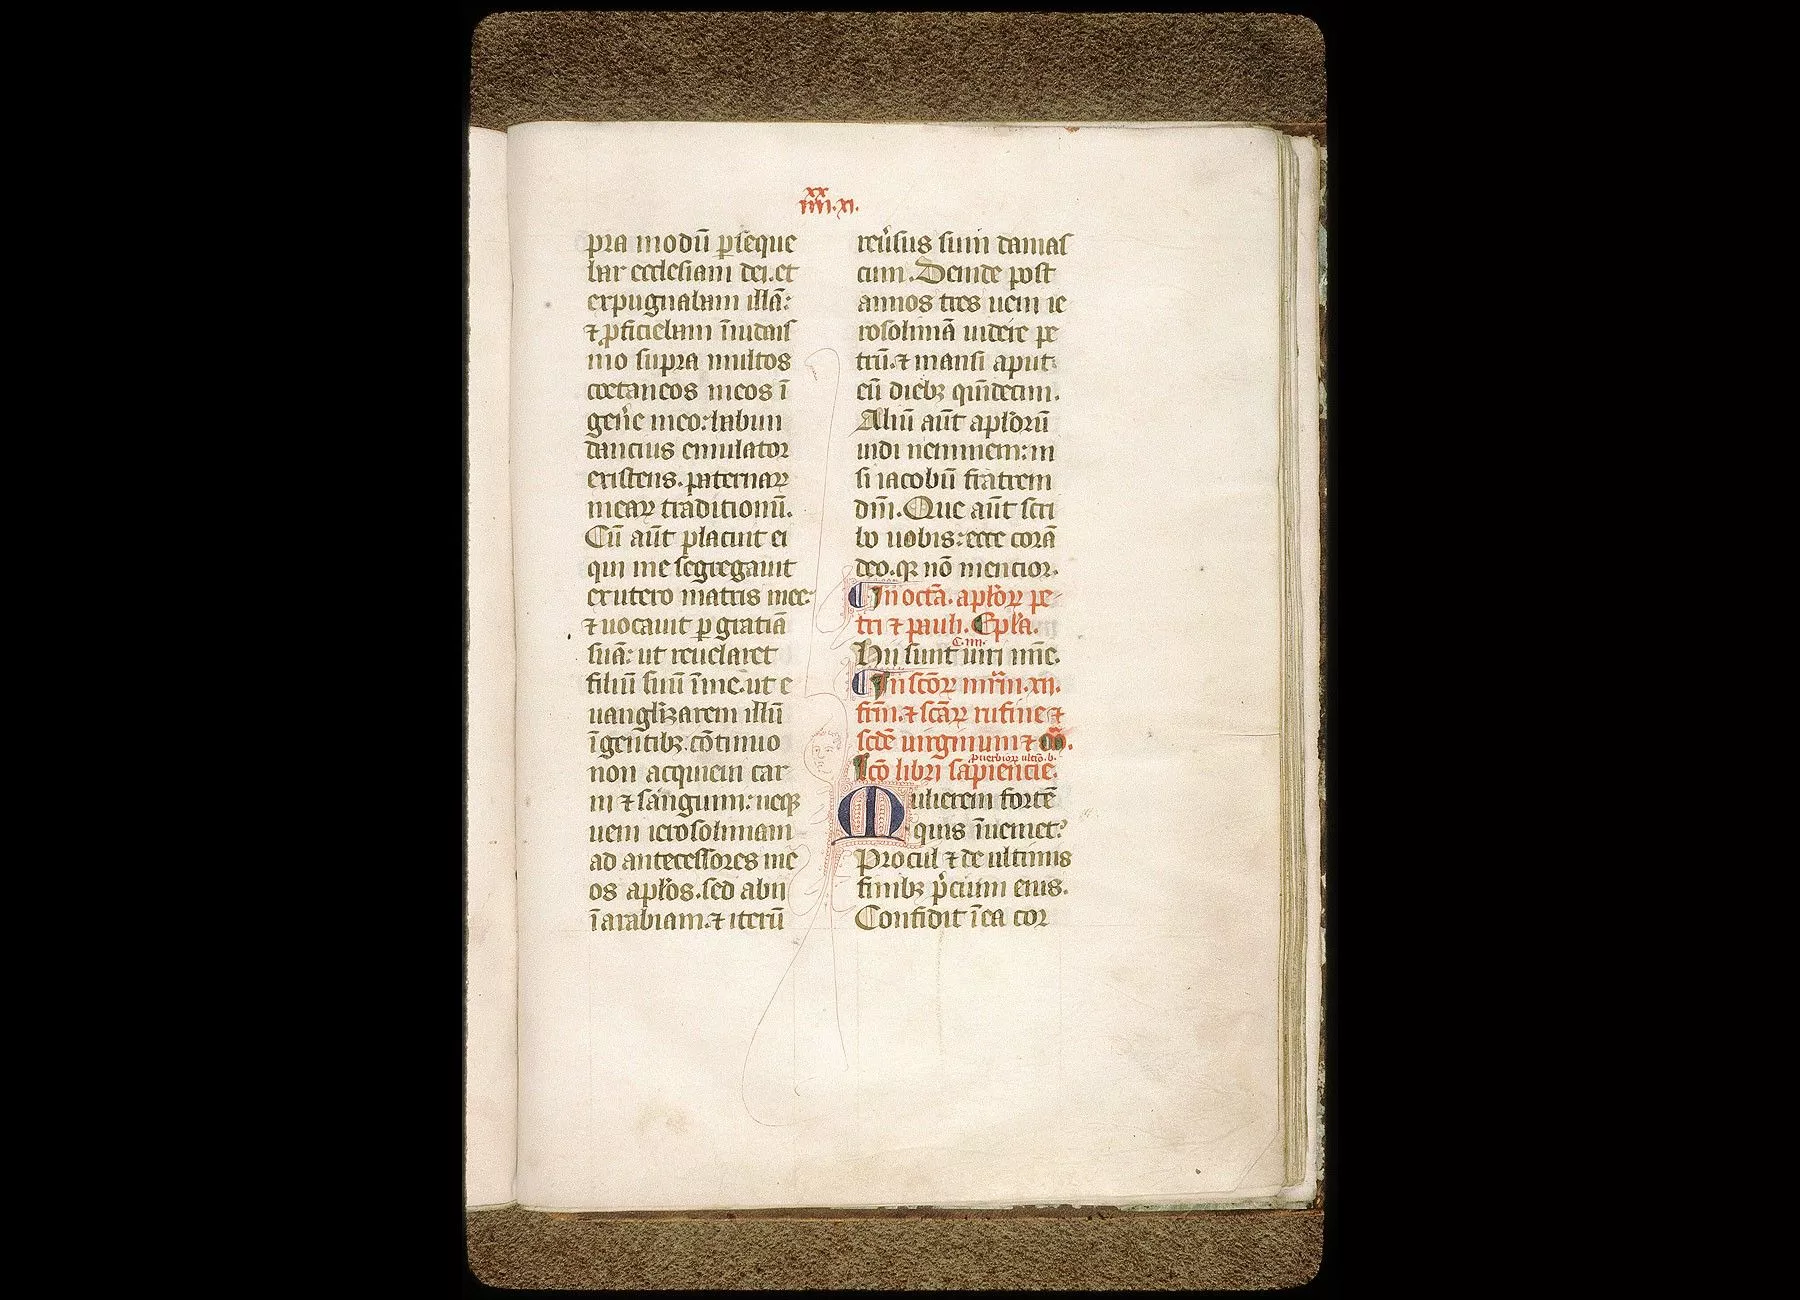 xx
iiii.xi.
pra modū ꝑseque
bar ecclesiam dei. et
expugnabam illā:
⁊ ꝓficiebam ī iudais
mo supra multos
coetaneos meos ī
geñe meo: habun
dancius emulator
existens. paternaꝝ
meaꝝ traditionū.
Cū aūt placuit ei
qui me segregauit
exutero matris mee:
⁊ uocauit ꝑ gratiā
suā: ut reuelaret
filiū suū ī me. ut e
uangl̄izarem illū
ī gentibꝫ. cōtinuo
non acquieui car
ni ⁊ sanguini: neqꝫ
ueni ierosolimam
ad antecessores me
os apl̄os. sed abii
ī arabiam. ⁊ iterū
reūsus sum damas
cum. Deinde post
annos tres ueni ie
rosolimā uidere pe
trū. ⁊ mansi aput
eū diebꝫ quīdecim.
Aliū aūt apl̄orū
uidi neminem: ni
si iacobū fratrem
dnī. Que aūt scri
bo uobis: ecce corā
deo. qꝛ nō mencior.
In octā. apl̄oꝝ pe
tri ⁊ pauli. Epl̄a.
C. iiii.
Hii sunt uiri mīe.
In scōꝝ mr̄m. xii.
frm̄. ⁊ scāꝝ rufine ⁊
scdē uirginum ⁊
puerbioꝝ ultīo. b.
lcō libri sapiencie.
Mulierem fortē
quis īueniet?
Procul ⁊ de ultimis
finibꝫ p̄cium eius.
Confidit ī ea cor